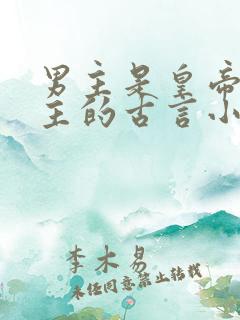 男主是皇帝
主的古言小
李木易
未经同意禁止转载